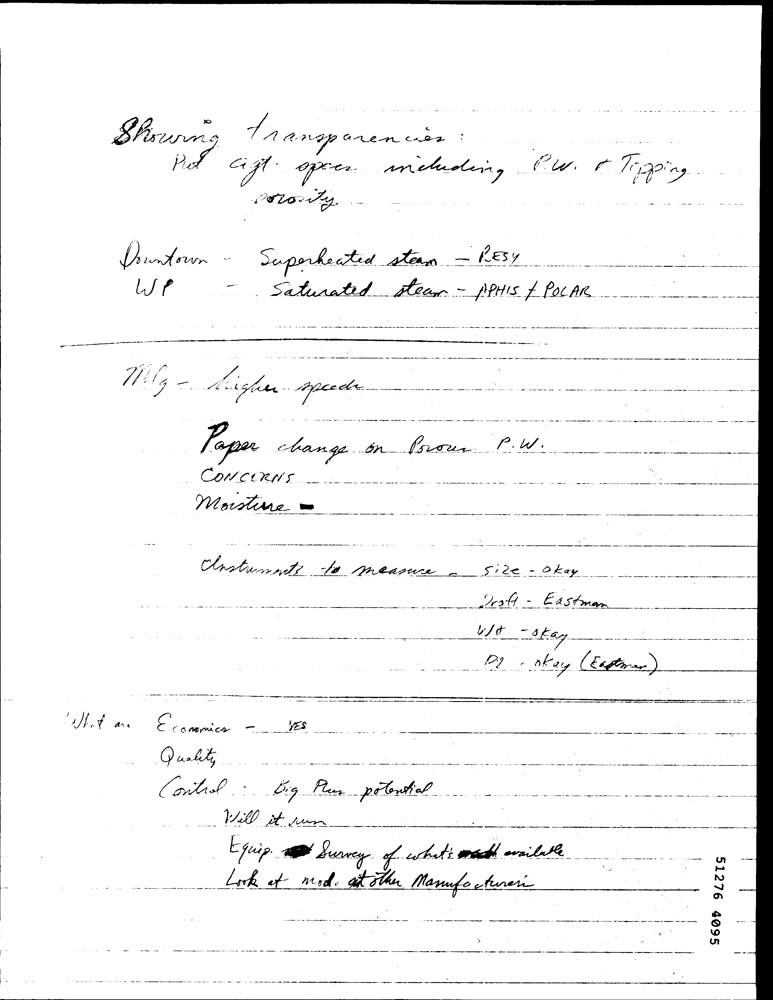 Showing transparencies:
Put cigt. specs including P.W. & Tipping
porosity
Downtown - Superheated steam - RESY
WP - Saturated steam - APHIS / POLAR
Mfg - higher speeds
Paper change on Porous P.W.
CONCERNS
Moisture -
Instruments to measure - Size - okay
Draft - Eastman
Wt - okay
- okay (Eastman)
What are Economics - YES
Quality
Control - Big Plus potential
Will it run
Equip. Survey of what's available
Look at mod. at other Manufacturers
51276 4095